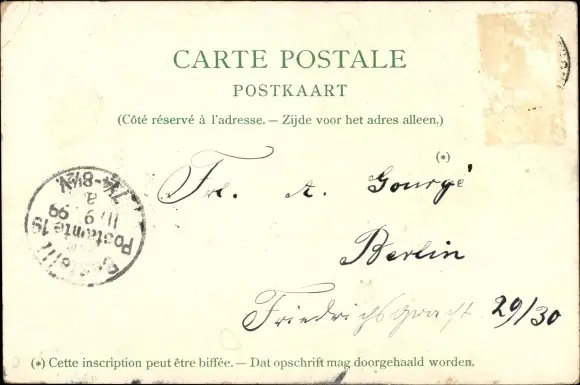 CARTE POSTALE
POSTKAART
(Côté réservé à l'adresse. — Zijde voor het adres alleen.)
(*)
Frl. A. Gourgé
Berlin
Friedrichsgracht 29/30
Postamte 19
11/9 99
7¼-8½N.
(*) Cette inscription peut être biffée. — Dat opschrift mag doorgehaald worden.